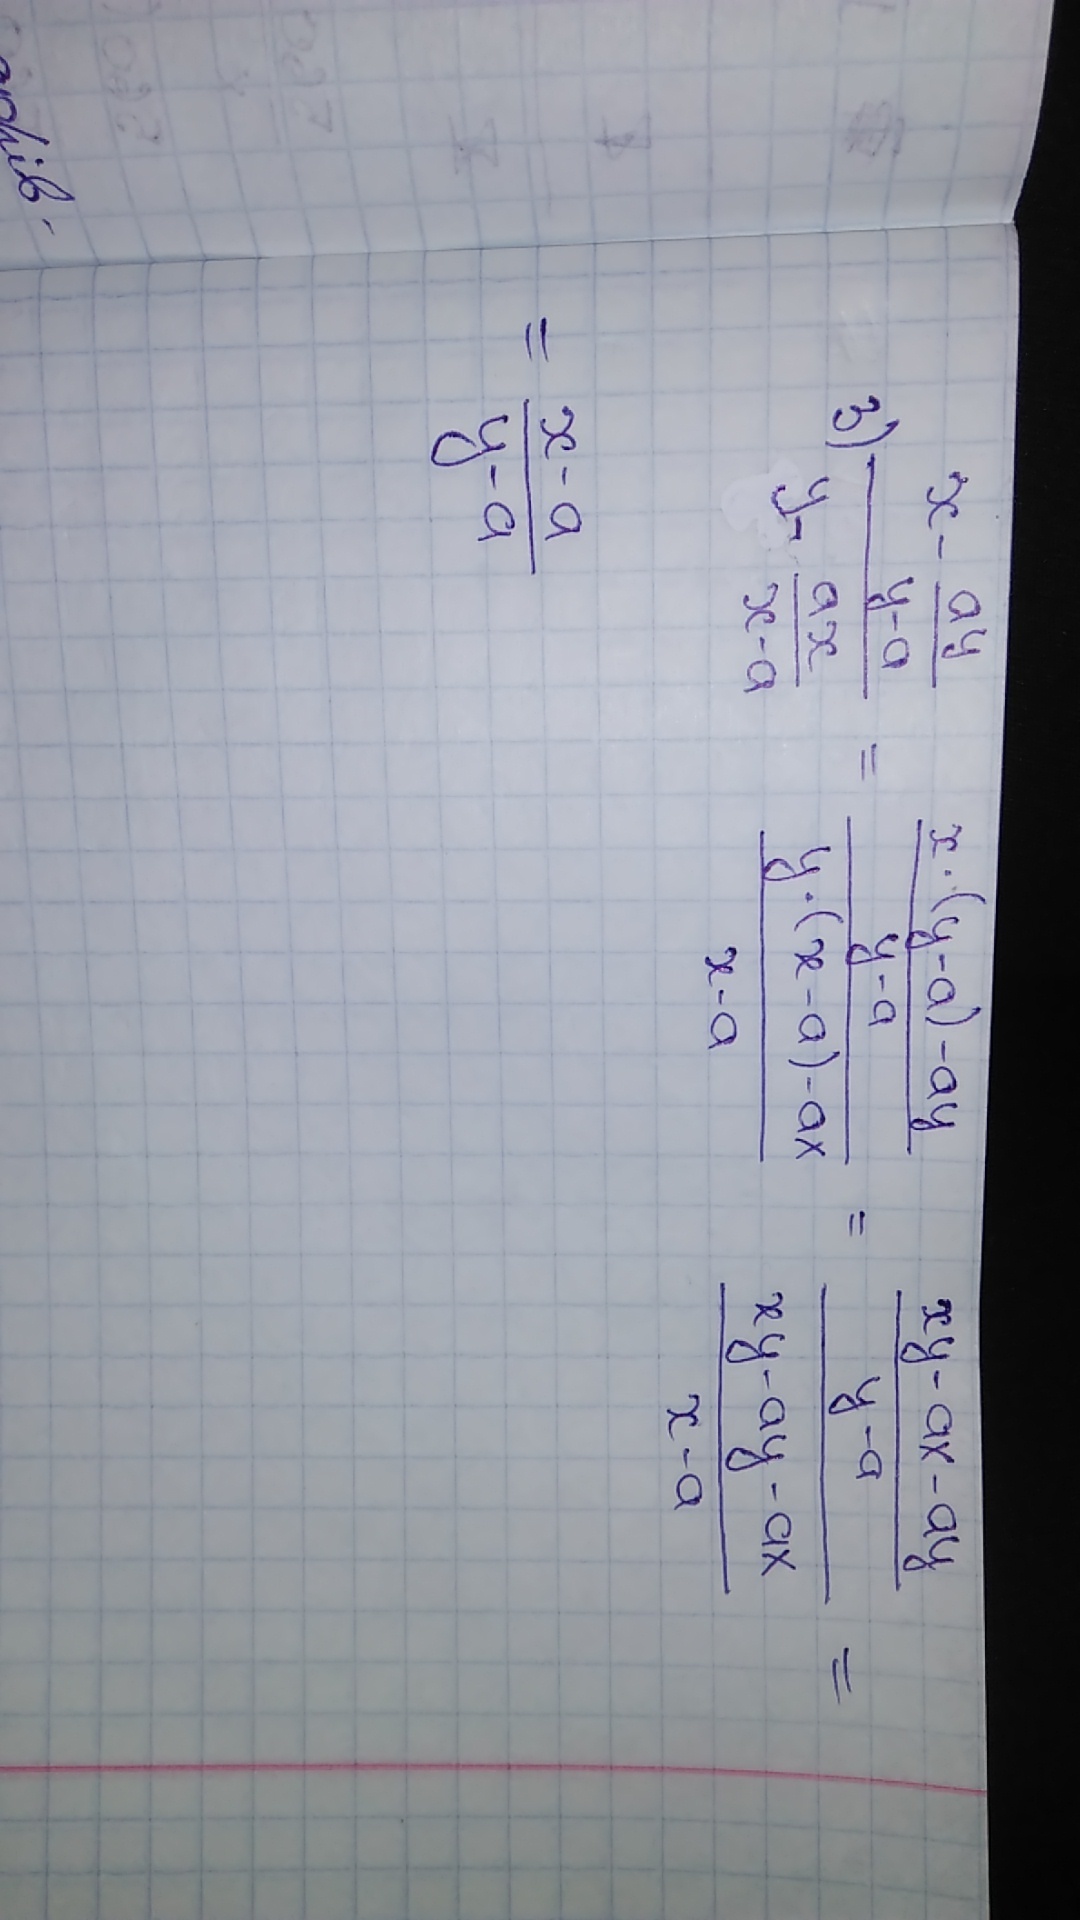 3) (x - ay/(y-a)) / (y - ax/(x-a)) = ((x·(y-a)-ay)/(y-a)) / ((y·(x-a)-ax)/(x-a)) = ((xy-ax-ay)/(y-a)) / ((xy-ay-ax)/(x-a)) =
= (x-a)/(y-a)